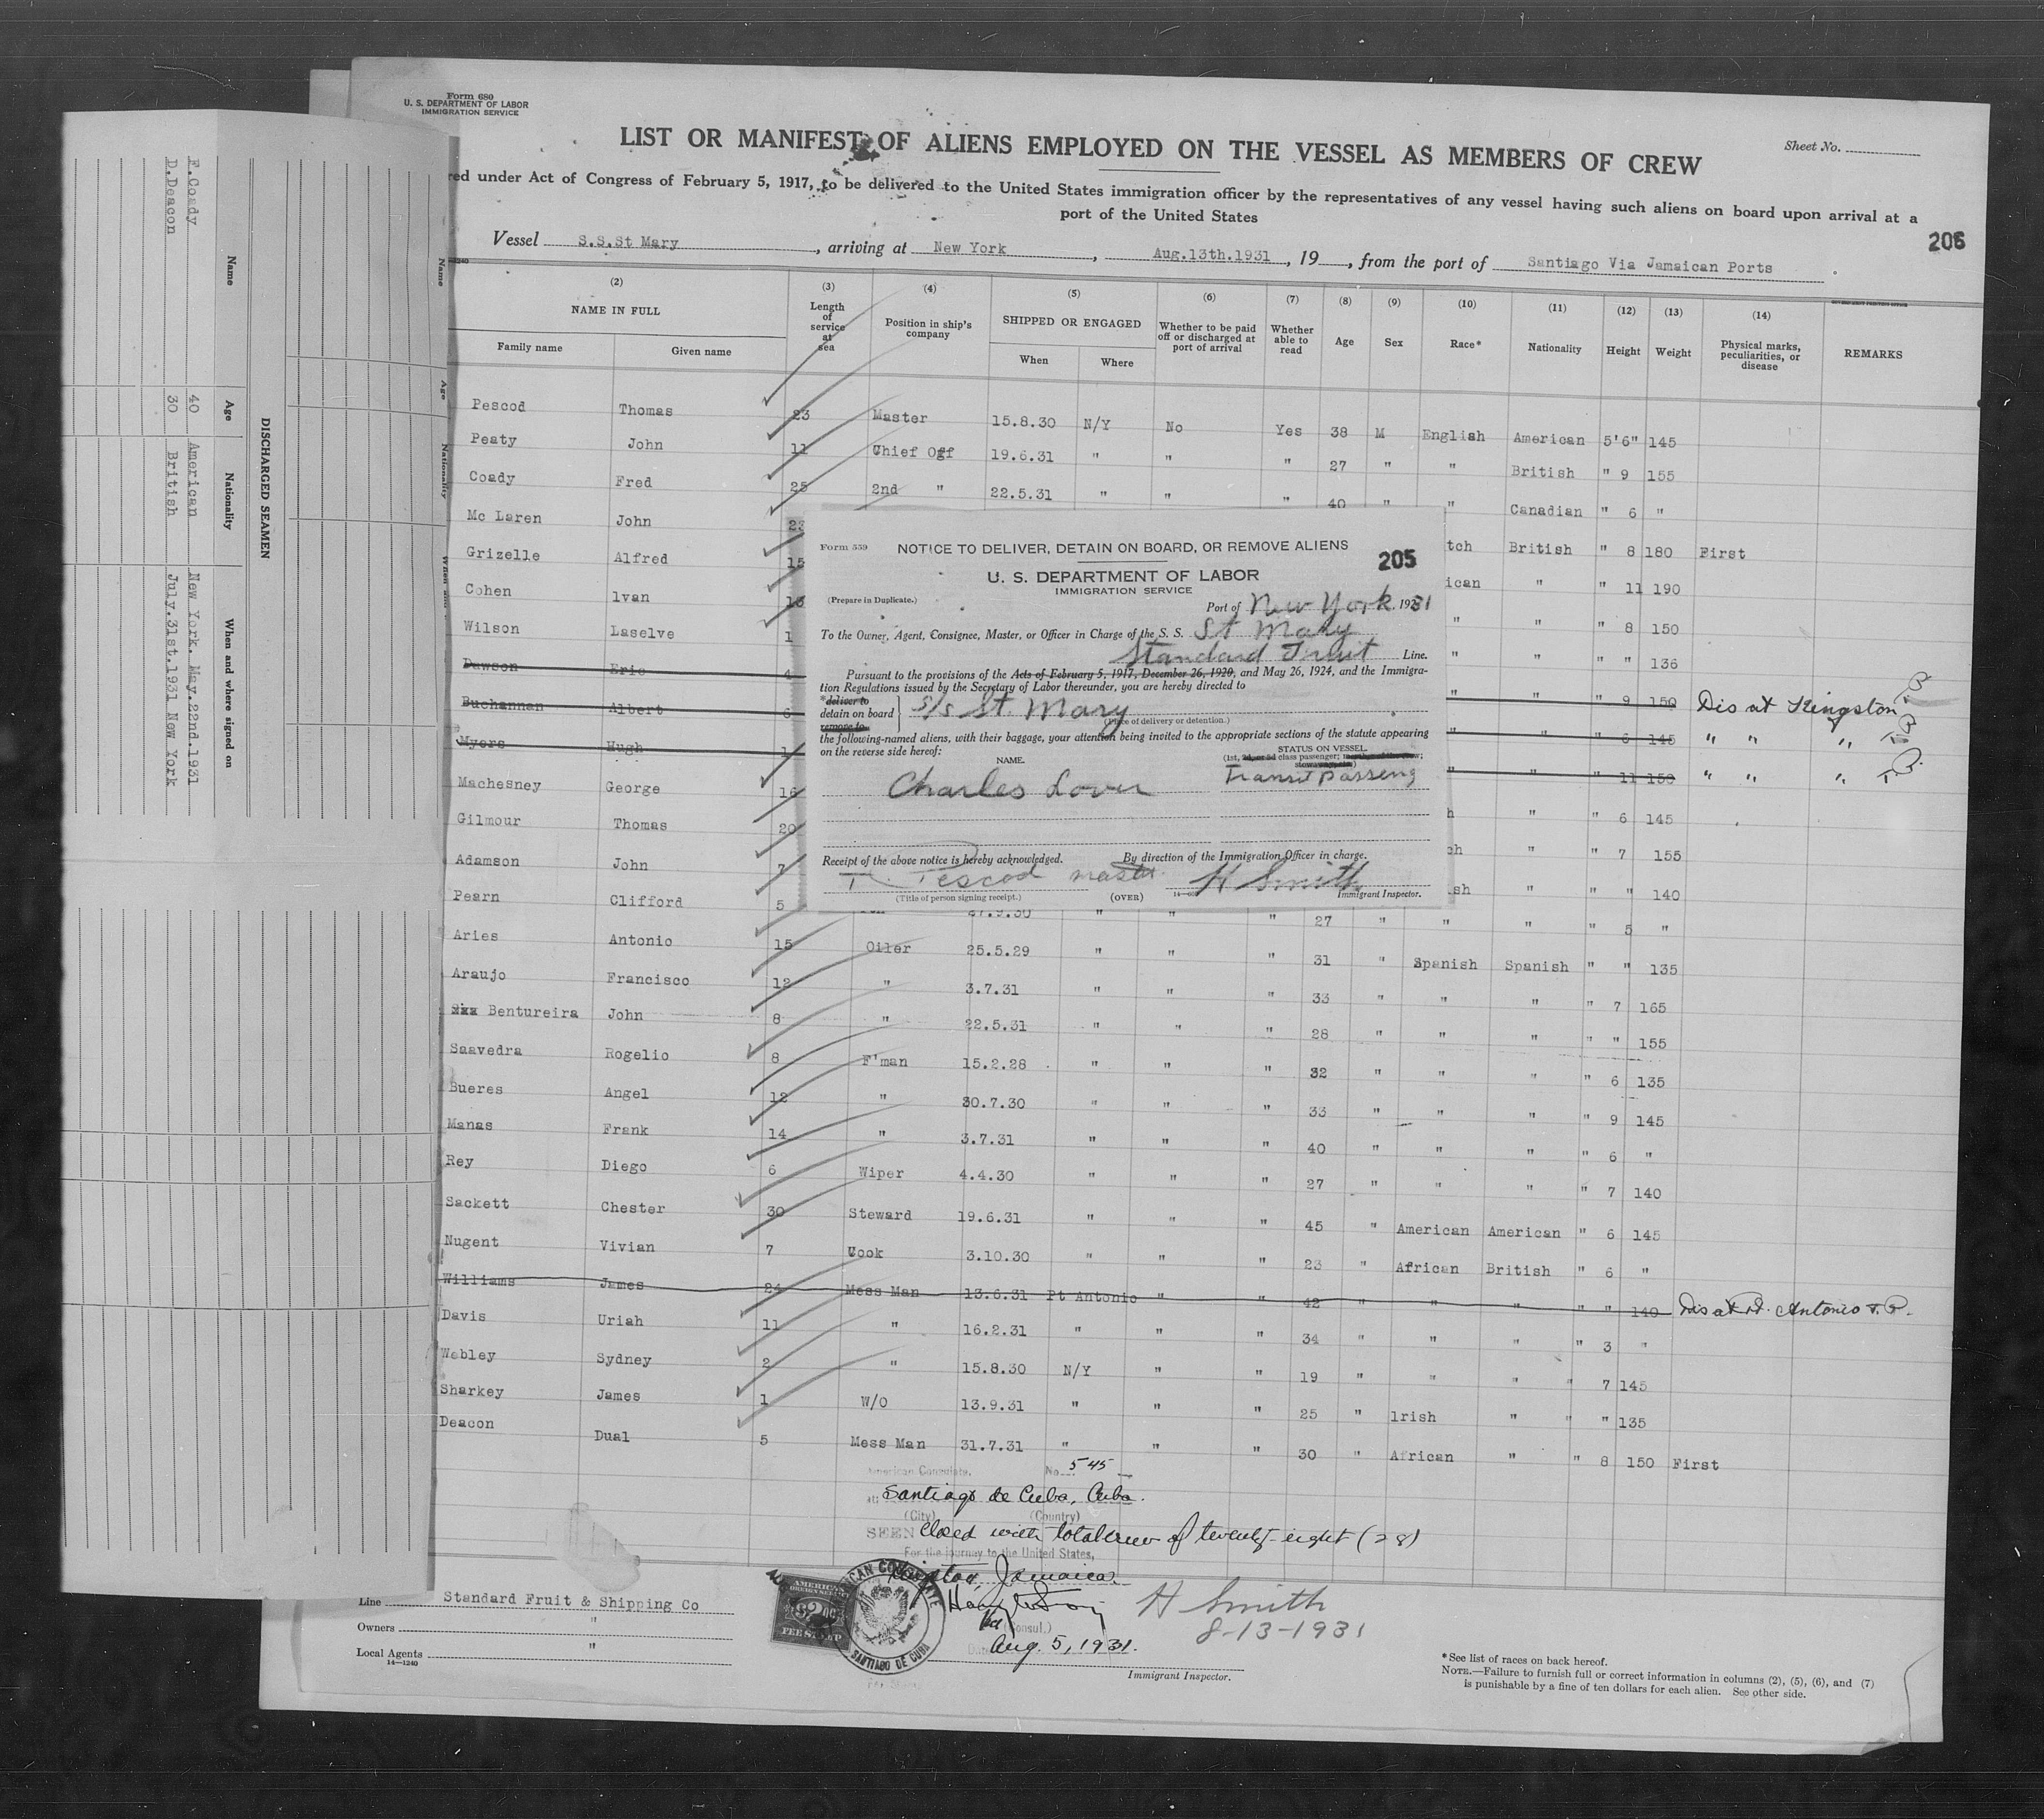 Form 680
U. S. DEPARTMENT OF LABOR
IMMIGRATION SERVICE
Sheet No.
LIST OR MANIFEST OF ALIENS EMPLOYED ON THE VESSEL AS MEMBERS OF CREW
red under Act of Congress of February 5, 1917, to be delivered to the United States immigration officer by the representatives of any vessel having such aliens on board upon arrival at a
port of the United States
206
Vessel S.S.St Mary, arriving at New York, Aug.13th.1931, 19, from the port of Santiago Via Jamaican Ports
(2) (3) (4) (5) (6) (7) (8) (9) (10) (11) (12) (13) (14)
NAME IN FULL Length of service at sea Position in ship's company SHIPPED OR ENGAGED Whether to be paid off or discharged at port of arrival Whether able to read Age Sex Race* Nationality Height Weight Physical marks, peculiarities, or disease REMARKS
Family name Given name When Where
Pescod Thomas 23 Master 15.8.30 N/Y No Yes 38 M English American 5'6" 145
Peaty John 11 Chief Off 19.6.31 " " " 27 " " British " 9 155
Coady Fred 25 2nd " 22.5.31 " " " 40 " " Canadian " 6 "
Mc Laren John 23 tch British " 8 180 First
Grizelle Alfred 15 ican " " 11 190
Cohen Ivan 13 " " " 8 150
Wilson Laselve 1 " " " " 136
Dawson Eric 4 " " " 9 150 Dis at Kingston
Buchannan Albert 6 " " " 6 145 " " "
Myers Hugh 1 " " " 11 150 " " "
Machesney George 16 h " " 6 145
Gilmour Thomas 20 ch " " 7 155
Adamson John 7 sh " " " 140
Pearn Clifford 5 27.9.30 " " " 27 " " " " 5 "
Aries Antonio 15 Oiler 25.5.29 " " " 31 " Spanish Spanish " " 135
Araujo Francisco 12 " 3.7.31 " " " 33 " " " " 7 165
Bentureira John 8 " 22.5.31 " " " 28 " " " " " 155
Saavedra Rogelio 8 F'man 15.2.28 " " " 32 " " " " 6 135
Bueres Angel 12 " 30.7.30 " " " 33 " " " " 9 145
Manas Frank 14 " 3.7.31 " " " 40 " " " " 6 "
Rey Diego 6 Wiper 4.4.30 " " " 27 " " " " 7 140
Sackett Chester 30 Steward 19.6.31 " " " 45 " American American " 6 145
Nugent Vivian 7 Cook 3.10.30 " " " 23 " African British " 6 "
Williams James 24 Mess Man 13.6.31 Pt Antonio " " 42 " " " " " 140 Dis at Pt. Antonio T.P.
Davis Uriah 11 " 16.2.31 " " " 34 " " " " 3 "
Webley Sydney 2 " 15.8.30 N/Y " " 19 " " " " 7 145
Sharkey James 1 W/O 13.9.31 " " " 25 " Irish " " " 135
Deacon Dual 5 Mess Man 31.7.31 " " " 30 " African " " 8 150 First
Form 559
NOTICE TO DELIVER, DETAIN ON BOARD, OR REMOVE ALIENS
205
U. S. DEPARTMENT OF LABOR
IMMIGRATION SERVICE
(Prepare in Duplicate.)
Port of New York, 1931
To the Owner, Agent, Consignee, Master, or Officer in Charge of the S. S. St Mary
Standard Fruit Line.
Pursuant to the provisions of the Acts of February 5, 1917, December 26, 1920, and May 26, 1924, and the Immigra-
tion Regulations issued by the Secretary of Labor thereunder, you are hereby directed to
*deliver to
detain on board
remove to
S/S St Mary
(Place of delivery or detention.)
the following-named aliens, with their baggage, your attention being invited to the appropriate sections of the statute appearing
on the reverse side hereof:
NAME. STATUS ON VESSEL
(1st, 2d, or 3d class passenger; member of the crew;
stowaway, etc.)
Charles Lover Transit passeng
Receipt of the above notice is hereby acknowledged. By direction of the Immigration Officer in charge.
T. Pescod master H Smith
(Title of person signing receipt.) (OVER) Immigrant Inspector.
American Consulate. No. 545
at Santiago de Cuba, Cuba.
(City) (Country)
SEEN Closed with total crew of twenty-eight (28)
For the journey to the United States,
Kingston, Jamaica
(Consul.)
Aug. 5, 1931.
AMERICAN CONSULATE
SANTIAGO DE CUBA
AMERICAN
FOREIGN SERVICE
$2
FEE STAMP
H Smith
8-13-1931
Immigrant Inspector.
Line Standard Fruit & Shipping Co
Owners "
Local Agents "
14—1240
*See list of races on back hereof.
NOTE.—Failure to furnish full or correct information in columns (2), (5), (6), and (7)
is punishable by a fine of ten dollars for each alien. See other side.
DISCHARGED SEAMEN
Name Age Nationality When and where signed on
F.Coady 40 American New York. May.22nd.1931
D.Deacon 30 British July.31st.1931 New York
Name Age Nationality